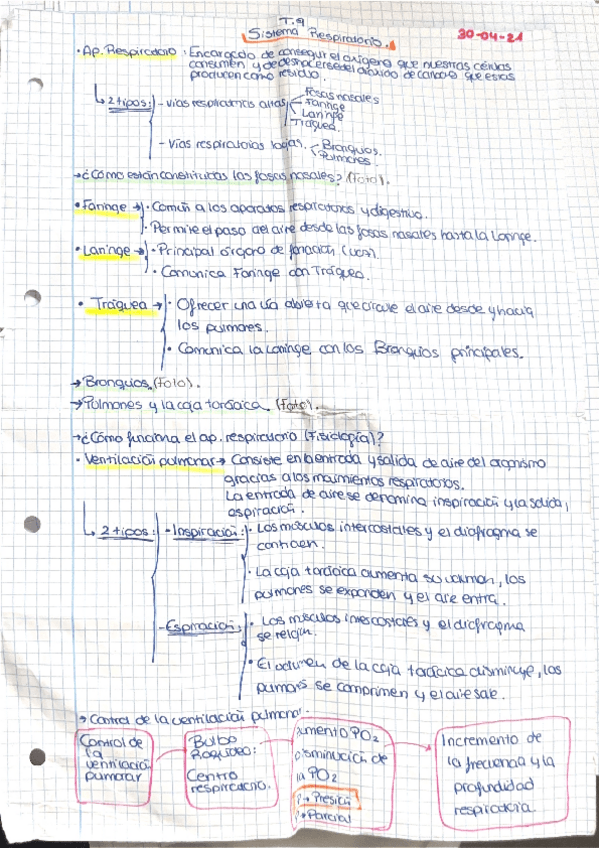 T.9
Sistema Respiratorio.
30-04-21
· Ap. Respiratorio: Encargado de conseguir el oxígeno que nuestras células
consumen y de deshacerse del dióxido de carbono que estas
producen como residuo.
↳ 2 tipos: - vías respiratorias altas
Fosas nasales
Faringe
Laringe
Tráquea.
- Vías respiratorias bajas.
Bronquios.
Pulmones.
→ ¿Cómo están constituidas las fosas nasales? (Foto).
• Faringe → · Común a los aparatos respiratorios y digestivo.
· Permite el paso del aire desde las fosas nasales hasta la Laringe.
• Laringe → · Principal órgano de fonación (voz).
· Comunica Faringe con Tráquea.
• Tráquea → · Ofrecer una vía abierta que circule el aire desde y hacia
los pulmones.
· Comunica la Laringe con los Bronquios principales.
→ Bronquios. (Foto).
→ Pulmones y la caja torácica. (Foto).
→ ¿Cómo funciona el ap. respiratorio (Fisiología)?
· Ventilación pulmonar → Consiste en la entrada y salida de aire del organismo
gracias a los movimientos respiratorios.
La entrada de aire se denomina inspiración y la salida,
espiración.
↳ 2 tipos: - Inspiración: · Los músculos intercostales y el diafragma se
contraen.
· La caja torácica aumenta su volumen, los
pulmones se expanden y el aire entra.
- Espiración: · Los músculos intercostales y el diafragma
se relajan.
· El volumen de la caja torácica disminuye, los
pulmones se comprimen y el aire sale.
→ Control de la ventilación pulmonar.
Control de
la
ventilación
pulmonar
Bulbo
Raquídeo:
Centro
respiratorio.
aumento PO₂
disminución de
la PO₂
P → Presión
P → Parcial
Incremento de
la frecuencia y la
profundidad
respiratoria.